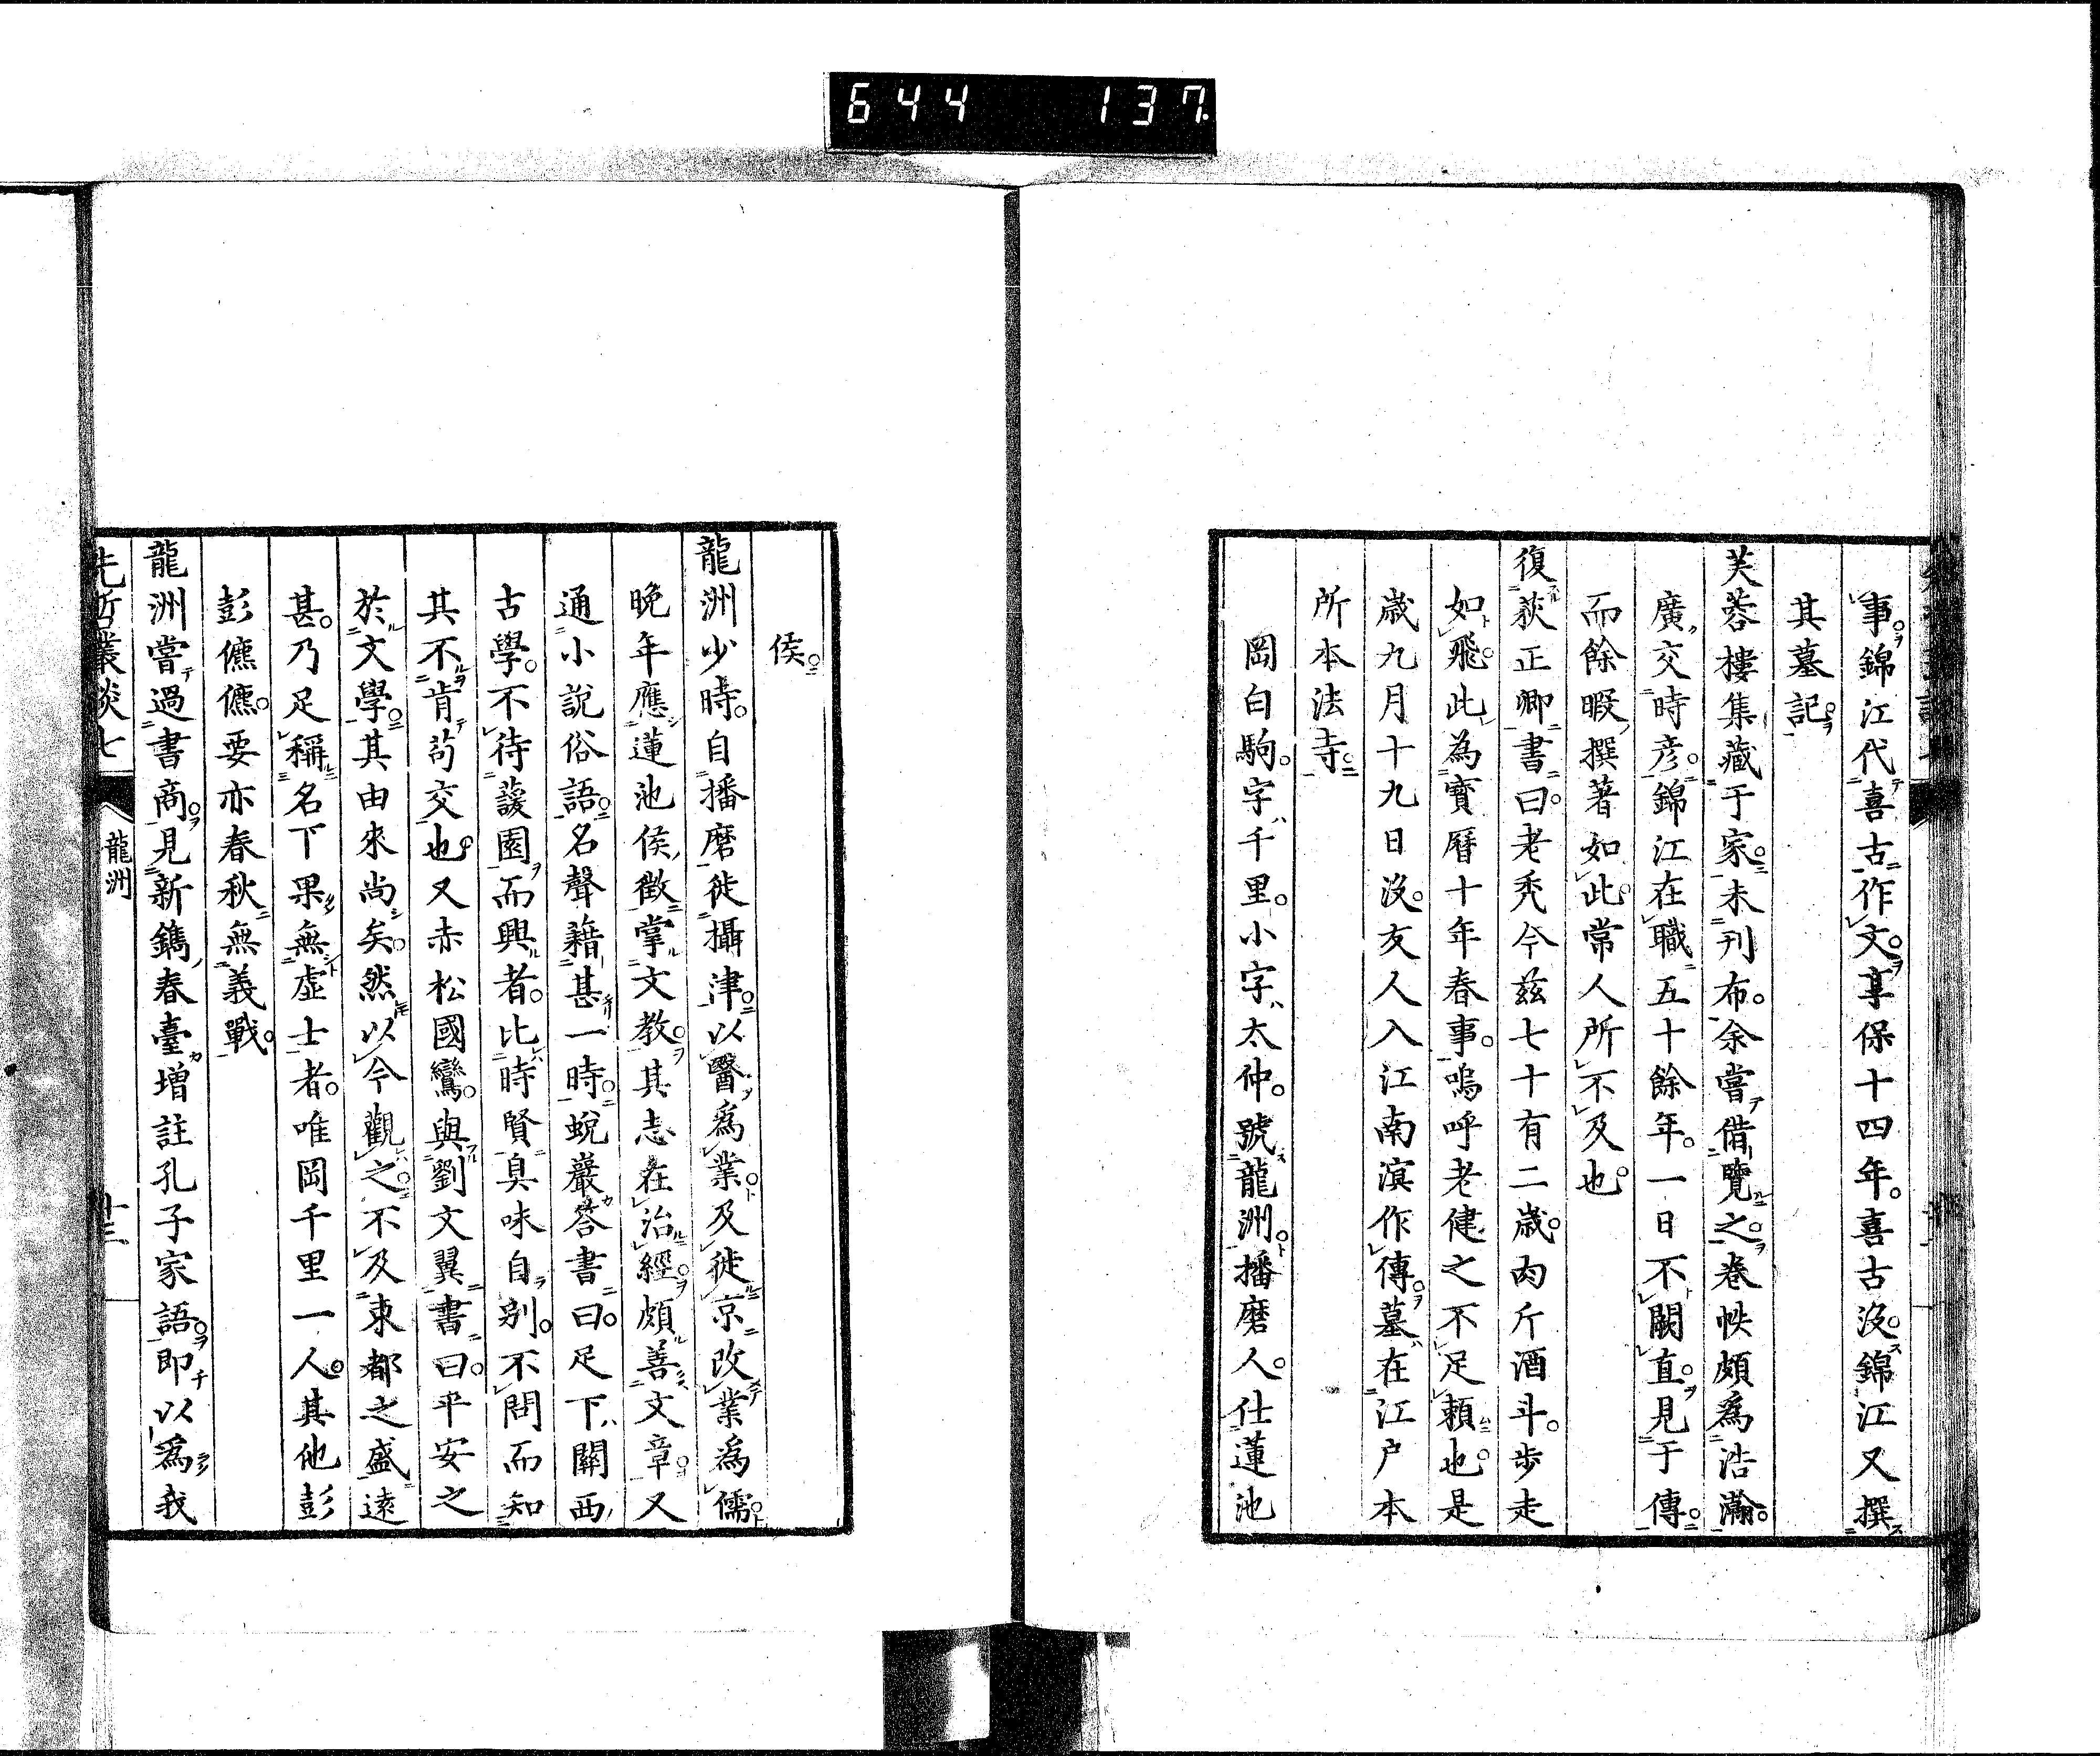 644 137
事錦江代喜古作文享保十四年喜古沒錦江又撰
其墓記
芙蓉樓集藏于家未刊布余嘗借覽之卷帙頗爲浩瀚
廣交時彦錦江在職五十餘年一日不闕直見于傳
而餘暇撰著如此常人所不及也
復荻正卿書曰老禿今茲七十有二歳肉斤酒斗步走
如飛此為寳曆十年春事嗚呼老健之不足賴也是
歳九月十九日沒友人入江南溟作傳墓在江戸本
所本法寺
岡白駒字千里小字太仲號龍洲播磨人仕蓮池
侯
龍洲少時自播磨徙攝津以醫爲業及徙京改業爲儒
晚年應蓮池侯徵掌文教其志在治經頗善文章又
通小說俗語名聲藉甚一時蛻巖答書曰足下關西
古學不待蘐園而興者比時賢臭味自别不問而知
其不肯苟交也又赤松國鸞與劉文翼書曰平安之
於文學其由來尚矣然以今觀之不及東都之盛遠
甚乃足稱名下果無虛士者唯岡千里一人其他彭
彭儦儦要亦春秋無義戰
龍洲嘗過書商見新鐫春臺增註孔子家語即以爲我
先哲叢談七
龍洲